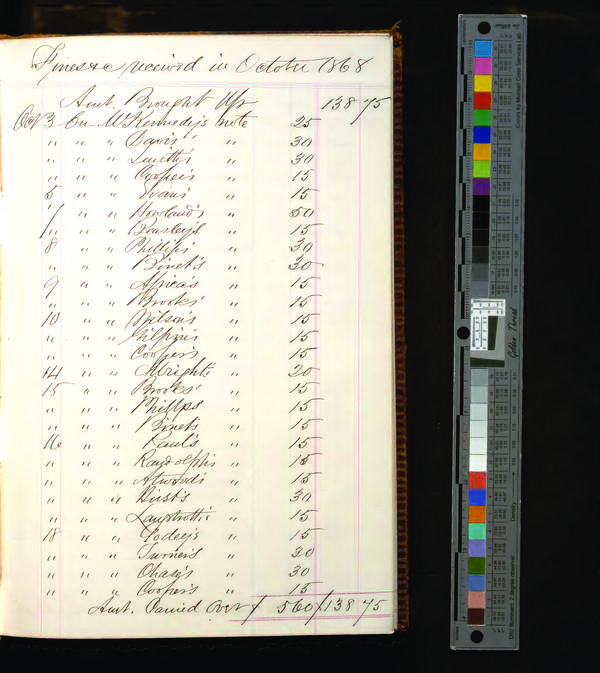 Fines &c received in October 1868
Amt. Brought Up 138 75
Oct 3 On McKennedy's note 25
" " " Davis' " 30
" " " Smith's " 30
" " " Cooper's " 15
5 " " Evans' " 15
7 " " Howland's " 50
" " " Beasley's " 15
8 " " Phillips' " 30
" " " Binet's " 30
9 " " Africa's " 15
" " " Brooks' " 15
10 " " Wilson's " 15
" " " Gilpin's " 15
" " " Cooper's " 15
14 " " Albright's " 20
15 " " Brooks' " 15
" " " Phillps' " 15
" " " Binet's " 15
16 " " Paul's " 15
" " " Randolph's " 15
" " " Atwood's " 15
" " " Hirst's " 30
" " " 15
18 " " Godey's " 15
" " " Turner's " 30
" " " Chase's " 30
" " " Cooper's " 15
Amt. Carried Over / 560 / 138 75
Golden Thread